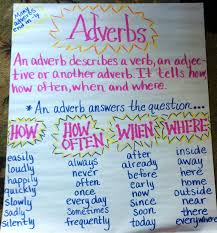 Many adverbs end in -ly
Adverbs
An adverb describes a verb, an adj-
ective or another adverb. It tells how,
how often, when and where.
*An adverb answers the question...
HOW HOW OFTEN WHEN WHERE
easily always after inside
loudly never already away
happily often before here
quickly once early home
slowly every day now outside
sadly sometimes since near
silently frequently soon there
today everywhere